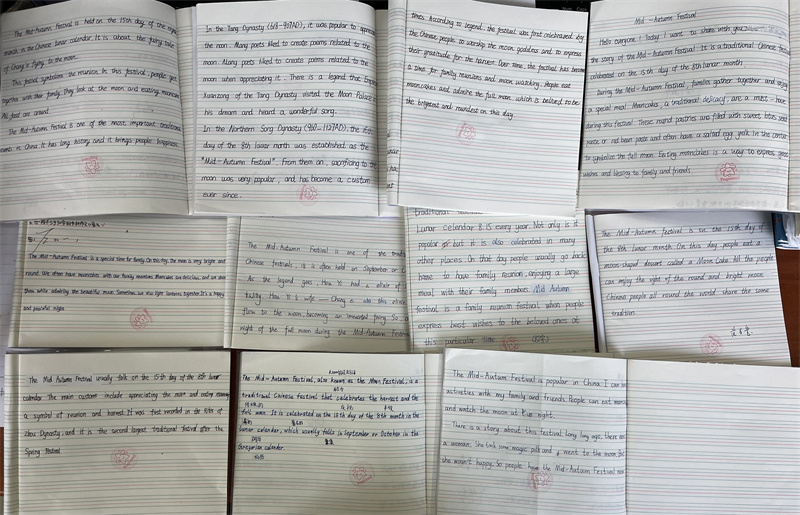 The Mid-Autumn Festival is held on the 15th day of the eighth
month in the Chinese lunar calendar. It is about the fairy tale
of Chang'e flying to the moon.
This festival symbolizes the reunion. In this festival, people get
together with their family. They look at the moon and eating mooncake
The Mid-Autumn Festival is one of the most important traditional
events in China. It has long history and it brings people happiness.
In the Tang Dynasty (618-907AD), it was popular to appreciate
the moon. Many poets liked to create poems related to the
moon. Many poets like to create poems related to the
moon when appreciating it. There is a legend that Emperor
Xuanzong of the Tang Dynasty visited the Moon Palace in
his dream and heard a wonderful song.
In the Northern Song Dynasty (960-1127AD), the 15th
day of the 8th lunar month was established as the
"Mid-Autumn Festival". From then on, sacrificing to the
moon was very popular, and has become a custom
ever since.
times. According to legend, the festival was first celebrated by
the Chinese people to worship the moon goddess and to express
their gratitude for the harvest. Over time, the festival has become
a time for family reunions and moon watching. People eat
mooncakes and admire the full moon, which is believed to be
the brightest and roundest on this day.
Mid-Autumn Festival
Hello everyone! Today I want to share with you
the story of the Mid-Autumn Festival. It is a traditional Chinese festival
celebrated on the 15th day of the 8th lunar month.
During the Mid-Autumn Festival, families gather together and enjoy
a special meal. Mooncakes, a traditional delicacy, are a must-have
during this festival. These round pastries are filled with sweet lotus seed
paste or red bean paste and often have a salted egg yolk in the center
to symbolize the full moon. Eating mooncakes is a way to express good
wishes and blessing to family and friends.
The Mid-Autumn Festival is a special time for family. On this day, the moon is very bright and
round. We often have mooncakes with our family members. Mooncakes are delicious, and we share
them while admiring the beautiful moon. Sometimes, we also light lanterns together. It's a happy
and peaceful night.
The Mid-Autumn Festival is one of the traditional
Chinese festivals, is often held on September or
As the legend goes, Hou Yi had a elixir of
Hou Yi's wife — Chang e ate this elixir
flew to the moon, becoming an immortal fairy. So
night of the full moon during the Mid-Autumn Festival
traditional
Lunar calendar 8.15 every year. Not only is it
popular but it is also celebrated in many
other places. On that day people usually go back
home to have family reunion, enjoying a large
meal with their family members. Mid Autumn
festival is a family reunion festival when people
express best wishes to the beloved ones at
this particular time.
The Mid-Autumn Festival is in the 15th day of
the 8th lunar month. On this day people eat a
moon-shaped dessert called a Moon Cake. All the people
can enjoy the sight of the round and bright moon.
Chinese people all round the world share the same
tradition.
The Mid Autumn Festival usually falls on the 15th day of the 8th lunar
calendar. The main customs include appreciating the moon and eating mooncakes
a symbol of reunion and harvest. It was first recorded in the Rites of
Zhou Dynasty, and it is the second largest traditional festival after the
Spring Festival
The Mid-Autumn Festival, also known as the Moon Festival, is a
traditional Chinese festival that celebrates the harvest and the
full moon. It is celebrated on the 15th day of the 8th month in the
lunar calendar, which usually falls in September or October in the
Gregorian calendar.
The Mid-Autumn Festival is popular in China. I can have
activities with my family and friends. People can eat mooncakes
and watch the moon at that night.
There is a story about this festival. Long long ago, there was
a woman. She took some magic pills and went to the moon. But
she wasn't happy. So people have the Mid-Autumn Festival now